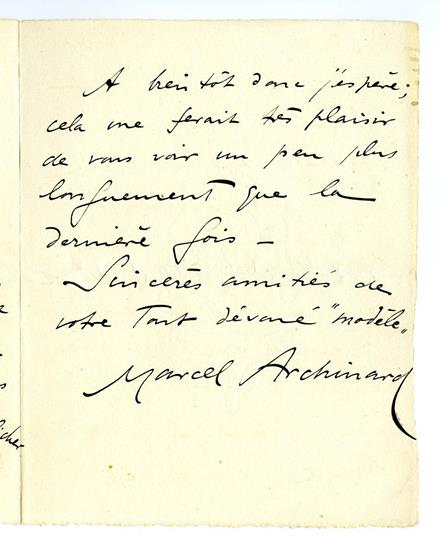 A bientôt donc j'espère ;
cela me ferait très plaisir
de vous voir un peu plus
longuement que la
dernière fois —
Sincères amitiés de
votre Tout dévoué "modèle"
Marcel Archinard